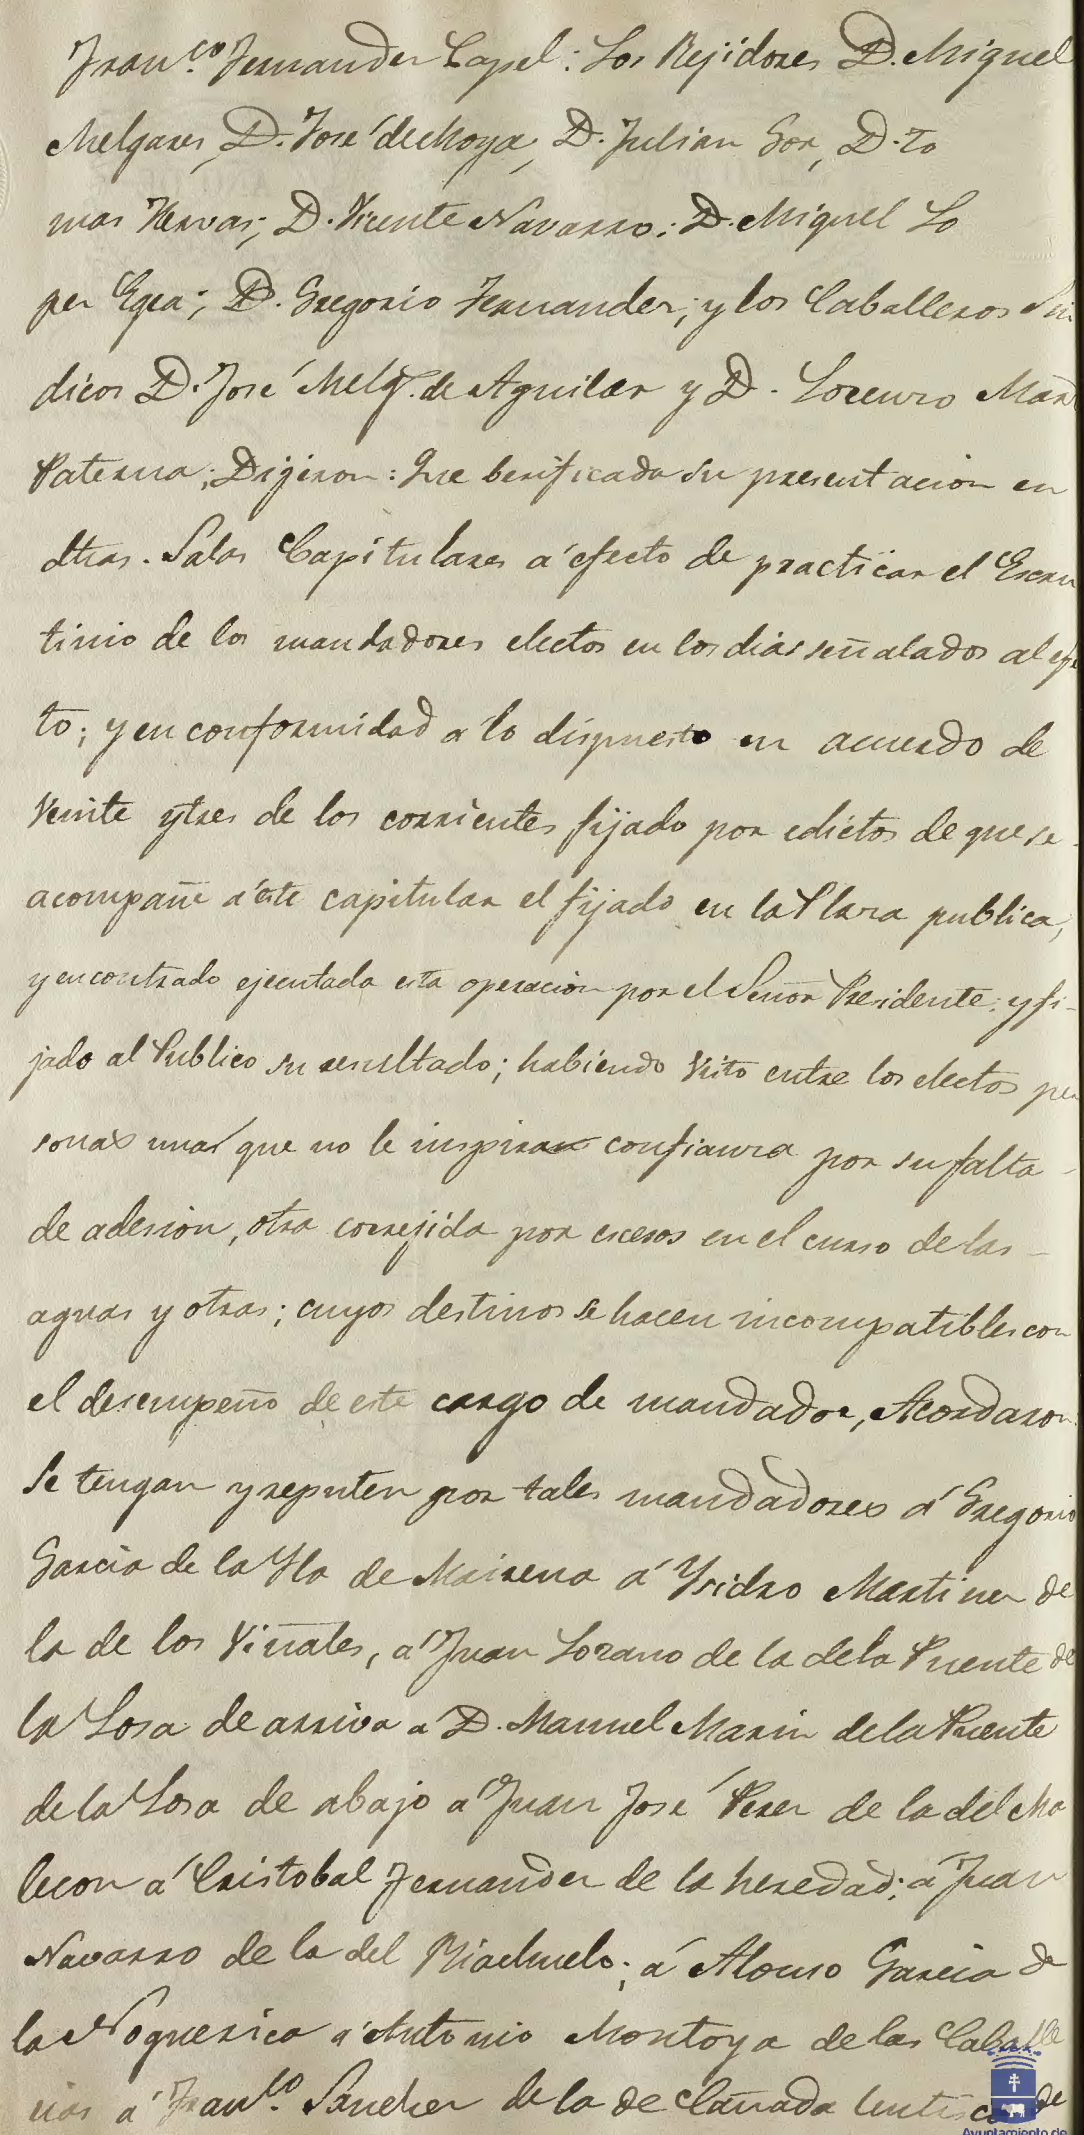 Fran.co Fernander Capel: Los Rejidores D. Miguel
Melgares, D. José de Moya, D. Julian Gor, D. to
mas Hervas; D. Vicente Navarro; D. Miguel Lo
per Egea; D. Gregorio Fernander; y los Caballeros Sin
dicos D. José Melg. de Aguilar y D. Lorenzo Mar
Paterna; Dijeron: Que berificada su presentacion en
dhas. Salas Capitulares a efecto de practicar el Escru
tinio de los mandadores electos en los dias señalados al efe
to; y en conformidad a lo dispuesto en acuerdo de
Veinte y tres de los corrientes fijado por edictos de que se
acompañe a éste capitular el fijado en la Plaza publica,
y encontrado ejecutada esta operacion por el Señor Presidente; y fi-
jado al Publico su resultado; habiendo Visto entre los electos per
sonas unas que no le inspiran confianza por su falta
de adesion, otra correjida por escesos en el curso de las
aguas y otras; cuyos destinos se hacen incompatibles con
el desempeño de este cargo de mandador, Acordaron
Se tengan y reputen por tales mandadores á Gregorio
Garcia de la Hla de Mairena á Ysidro Martiner de
la de los Viñales, á Juan Lozano de la de la Puente de
la Losa de arriva a D. Manuel Marin de la Puente
de la Losa de abajo a Juan José Perer de la del Ma
lecon a Cristobal Fernander de la heredad; a Juan
Navarro de la del Riachuelo; á Alonso Garcia de
la Noguerica a Antonio Montoya de las Caballe
rias a Fran.co Sancher de la de Cañada lentisca de
Ayuntamiento de